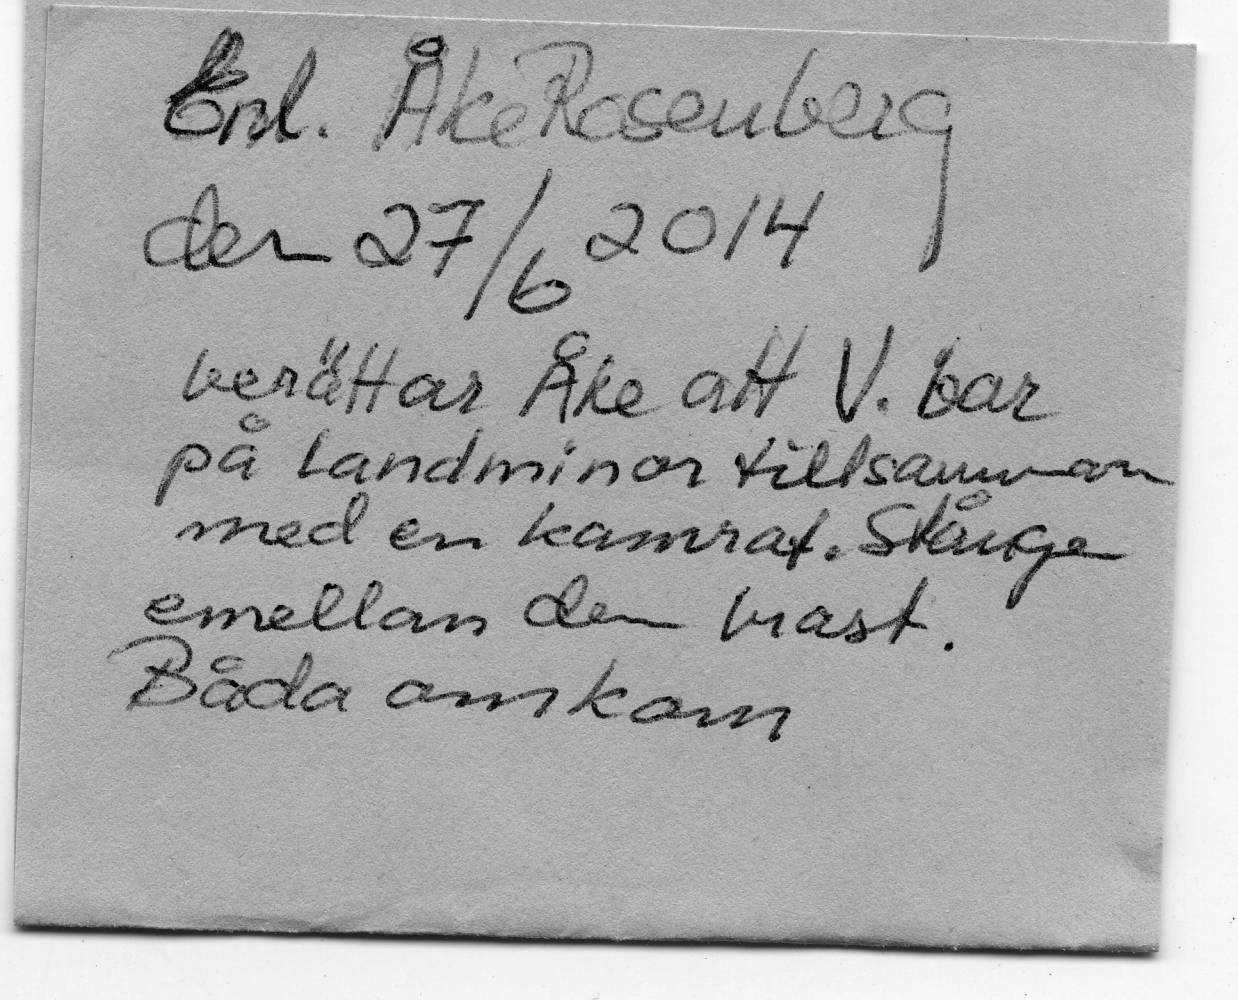 Enl. Åke Rosenberg
den 27/6 2014
berättar Åke att V. bar
på Landminor tillsamman
med en kamrat. Stången
emellan dem brast.
Båda omkom